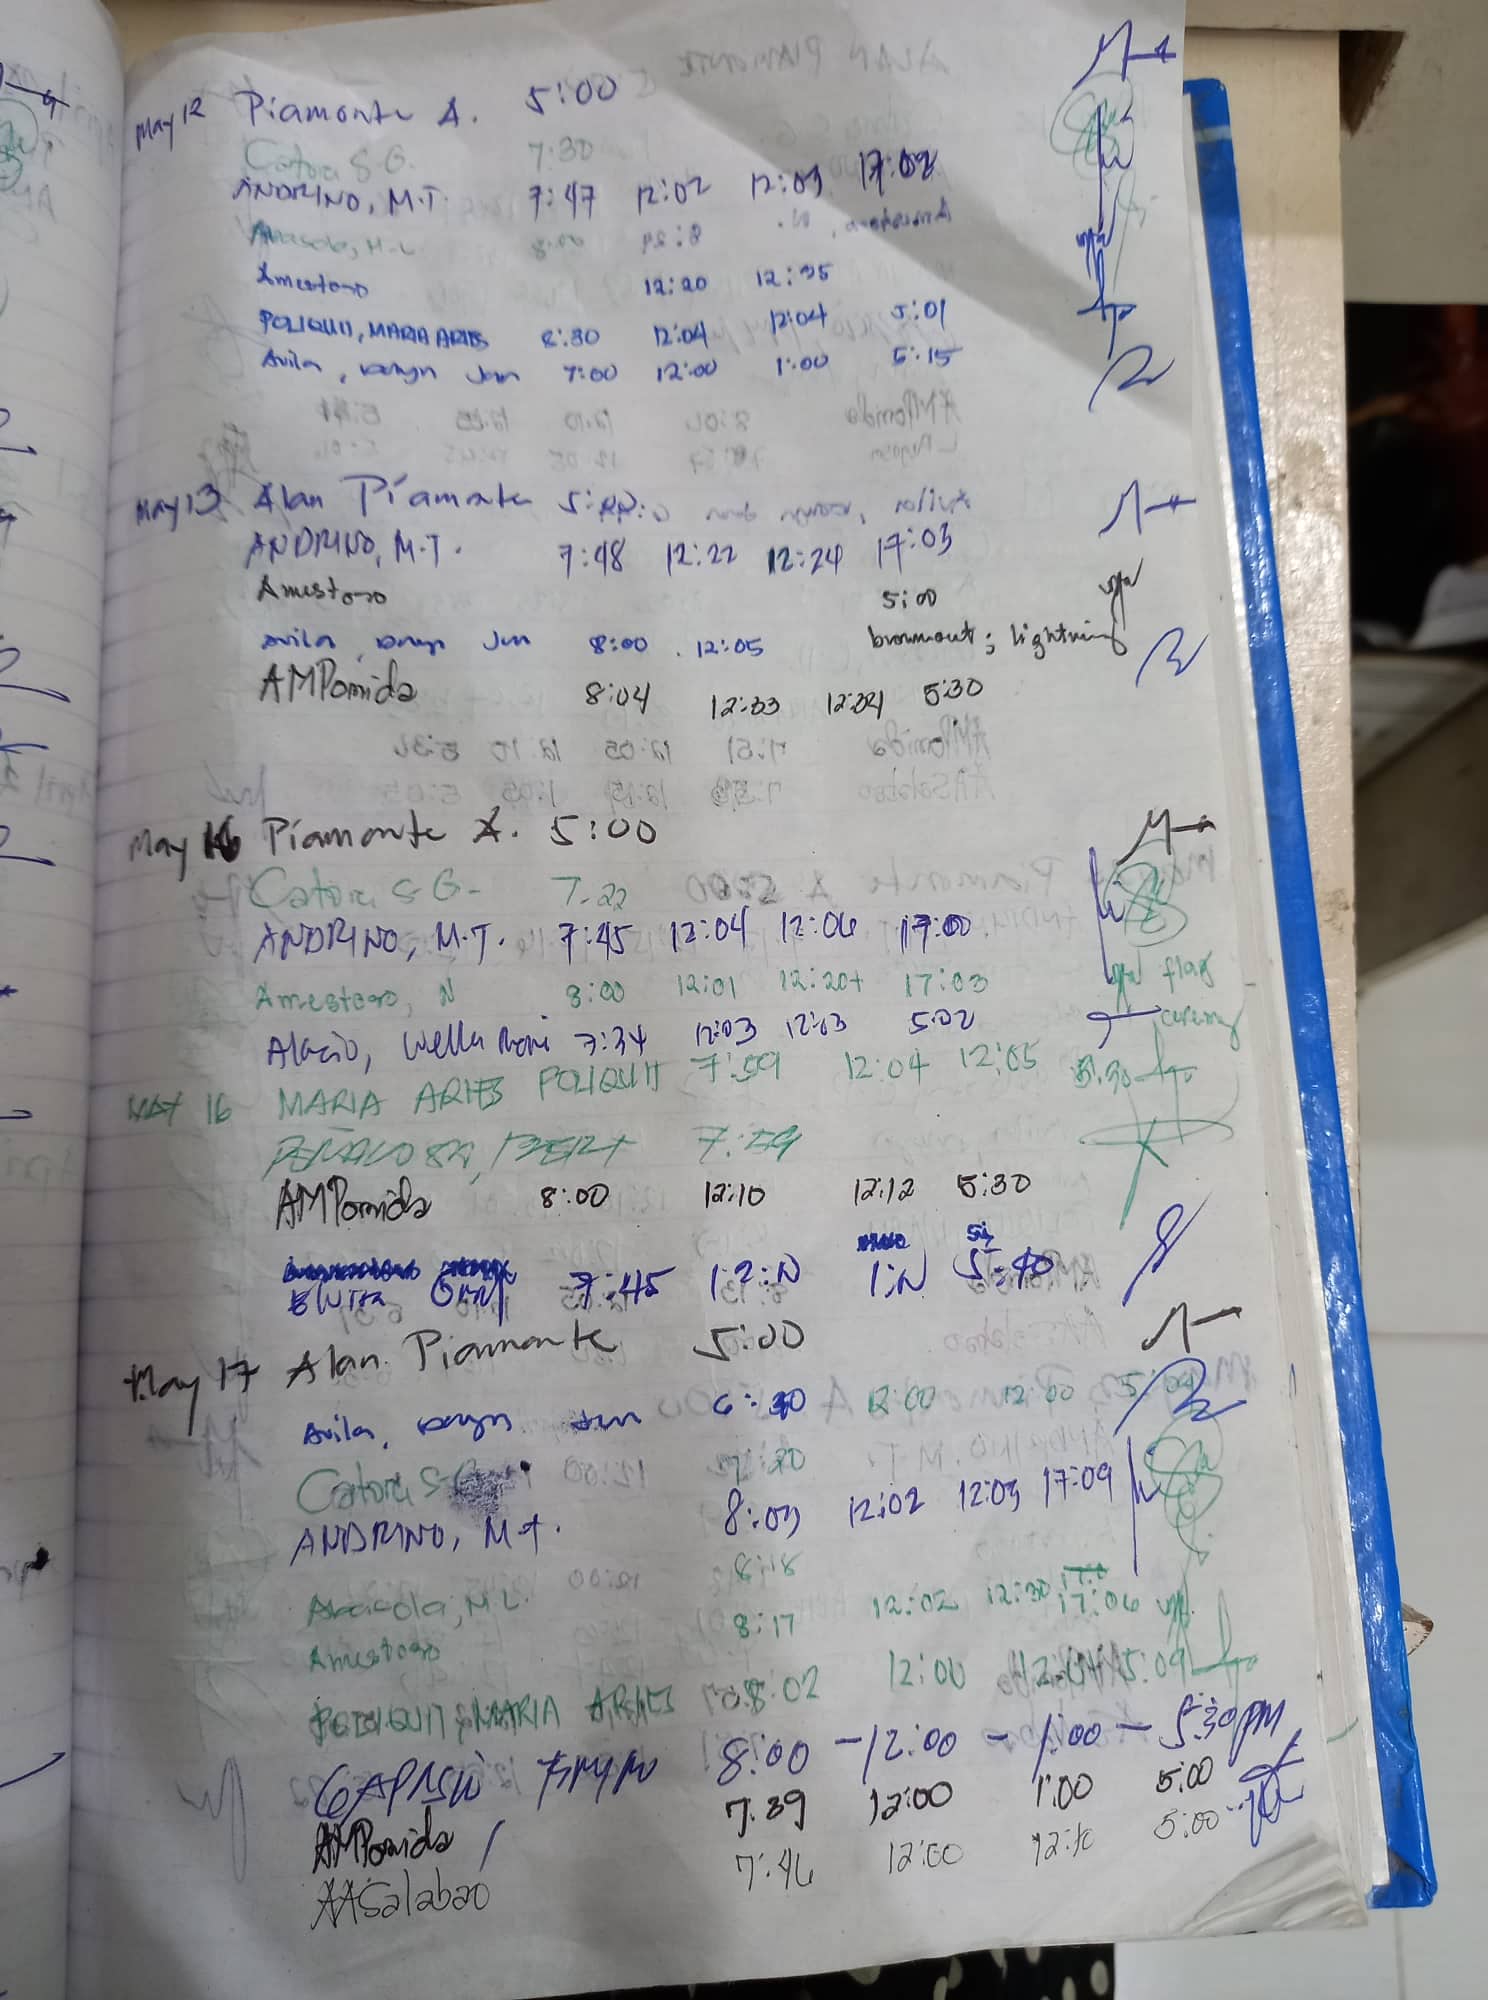 May 12 Piamonte A. 5:00
Catora S G. 7:30
ANDRINO, M.T. 7:47 12:02 12:03 17:02
8:00
Amestoso 12:20 12:35
POLIQUIT, MARIA ARIES 8:30 12:04 12:04 5:01
Avila, Jun 7:00 12:00 1:00 5:15
May 13 Alan Piamonte
ANDRINO, M.T. 7:48 12:22 12:24 17:03
Amestoso 5:00
Avila, Jun 8:00 12:05 brownout; lightning
AMPomida 8:04 12:33 12:34 5:30
May 16 Piamonte A. 5:00
Catora S G- 7.22
ANDRINO, M.T. 7:45 12:04 12:06 17:00
Amestoso, N 8:00 12:01 12:20+ 17:03 flag
Alacio, Wella 7:34 12:03 12:03 5:02 ceremony
MAY 16 MARIA ARIES POLIQUIT 7:59 12:04 12:05 5:30
7:59
AMPomida 8:00 12:10 12:12 5:30
7:45 12:N 1:N 5:40
May 17 Alan Piamonte 5:00
Avila, Jun 6:30 12:00 12:00 5:04
Catora S G 7:20
ANDRINO, M.T. 8:03 12:02 12:03 17:09
8:18
Amestoso 8:17 12:02 12:30 17:06
POLIQUIT, MARIA ARIES 8:02 12:00 12:04 5:09
8:00 - 12:00 - 1:00 - 5:30 PM
AMPomida 7:39 12:00 1:00 5:00
AASalabao 7:46 12:00 5:00